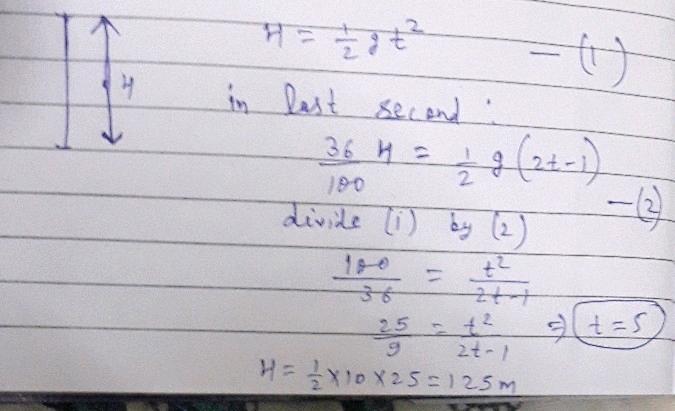 H = 1/2 g t² — (1)
H
in last second :
36/100 H = 1/2 g (2t-1) — (2)
divide (1) by (2)
100/36 = t²/2t-1
25/9 = t²/2t-1 ⇒ t=5
H = 1/2 × 10 × 25 = 125m